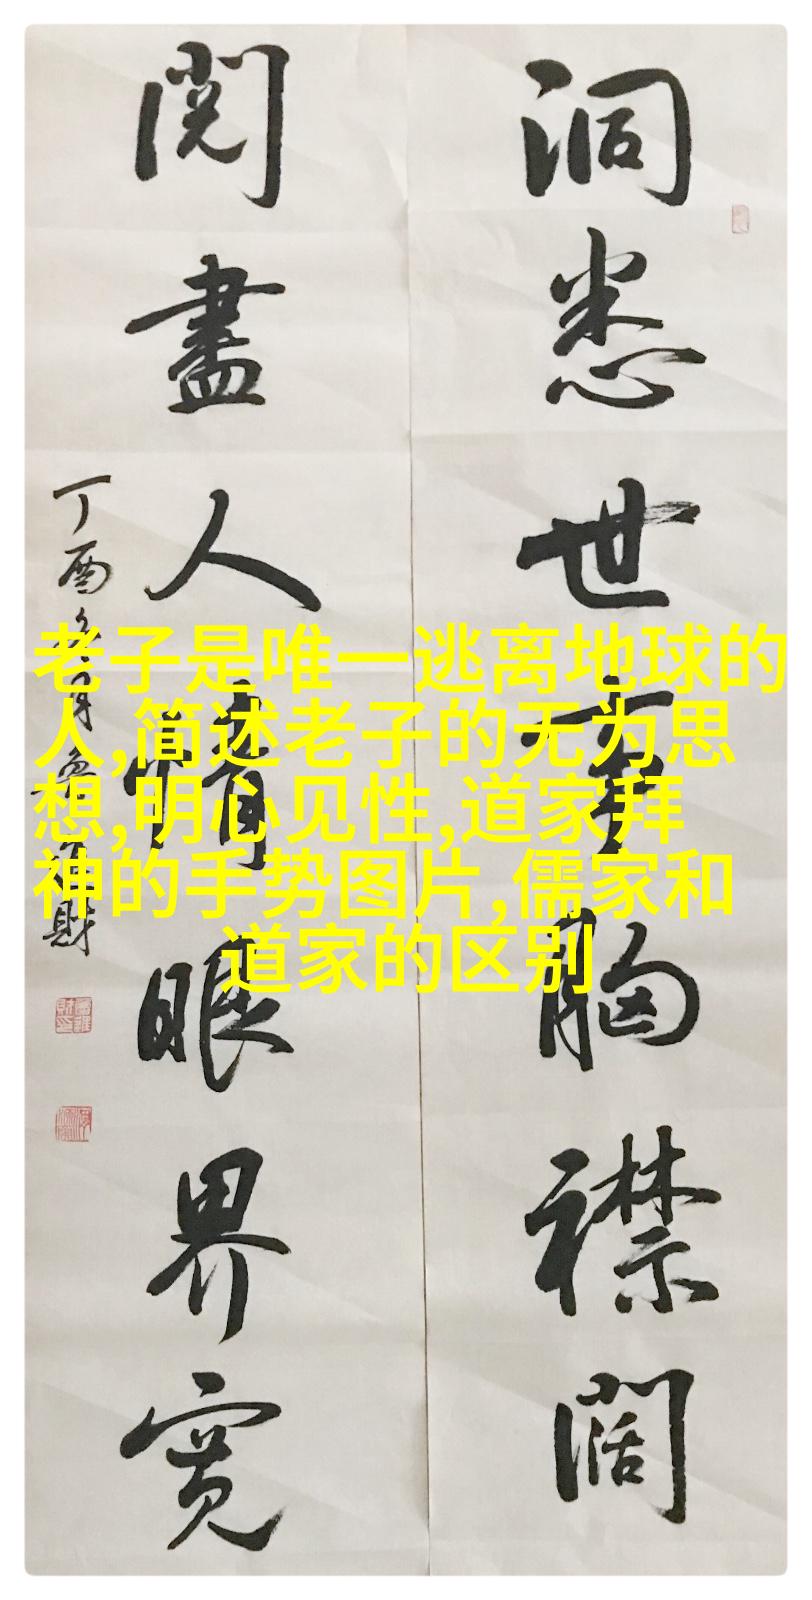 洞悉世事胸襟闊
閱盡人情眼界寬
丁酉冬月
財
老子是唯一逃离地球的
人,简述老子的无为思
想,明心见性,道家拜
神的手势图片,儒家和
道家的区别